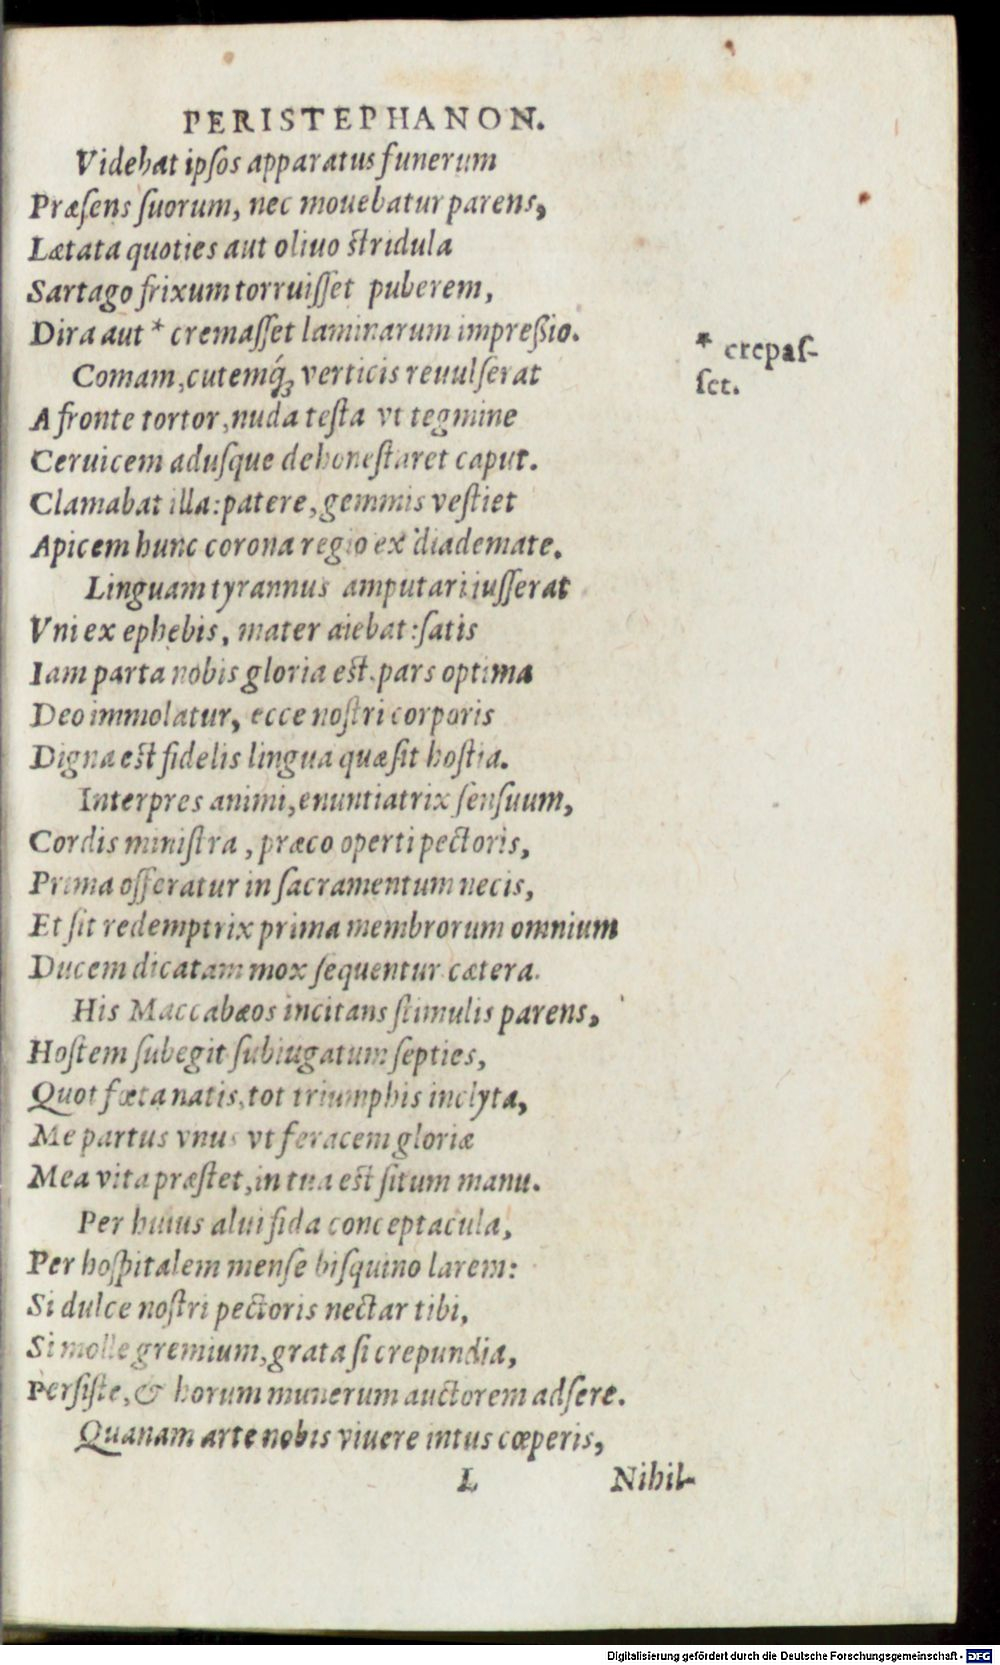 PERISTEPHANON.
Videbat ipſos apparatus funerum
Præſens ſuorum, nec mouebatur parens,
Lætata quoties aut oliuo stridula
Sartago frixum torruiſſet puberem,
Dira aut * cremaſſet laminarum impreßio.
* crepaſ-
ſet.
Comam, cutemq́; verticis reuulſerat
A fronte tortor, nuda teſta vt tegmine
Ceruicem aduſque dehoneſtaret caput.
Clamabat illa: patere, gemmis veſtiet
Apicem hunc corona regio ex diademate.
Linguam tyrannus amputari iuſſerat
Vni ex ephebis, mater aiebat: ſatis
Iam parta nobis gloria est. pars optima
Deo immolatur, ecce noſtri corporis
Digna est fidelis lingua quæ ſit hoſtia.
Interpres animi, enuntiatrix ſenſuum,
Cordis miniſtra, præco operti pectoris,
Prima offeratur in ſacramentum necis,
Et ſit redemptrix prima membrorum omnium
Ducem dicatam mox ſequentur cætera.
His Maccabæos incitans ſtimulis parens,
Hoſtem ſubegit ſubiugatum ſepties,
Quot fœta natis, tot triumphis inclyta,
Me partus vnus vt feracem gloriæ
Mea vita præſtet, in tua est ſitum manu.
Per huius alui fida conceptacula,
Per hoſpitalem menſe biſquino larem:
Si dulce noſtri pectoris nectar tibi,
Si molle gremium, grata ſi crepundia,
Perſiſte, & horum munerum auctorem adſere.
Quanam arte nobis viuere intus cœperis,
L Nihil-
Digitalisierung gefördert durch die Deutsche Forschungsgemeinschaft - DFG